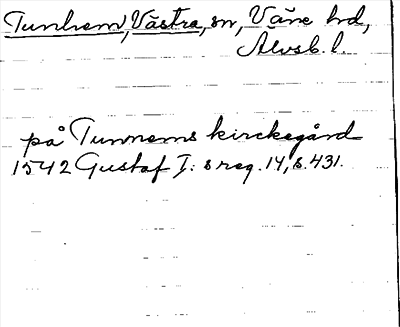 Tunhem, Västra, sn, Väne hd,
Älvsb. l.
på Tunnems kirckegård
1542 Gustaf I:s reg. 14, s. 431.